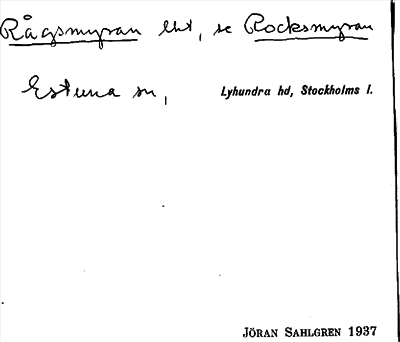 Rågsmyran lht, se Rocksmyran
Estuna sn, Lyhundra hd, Stockholms l.
JÖRAN SAHLGREN 1937